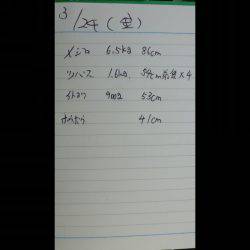 3/24 (金)
メジロ 6.5kg 86cm
ツバス 1.6kg 54cm前後×4
イトヨリ 900g 53cm
41cm